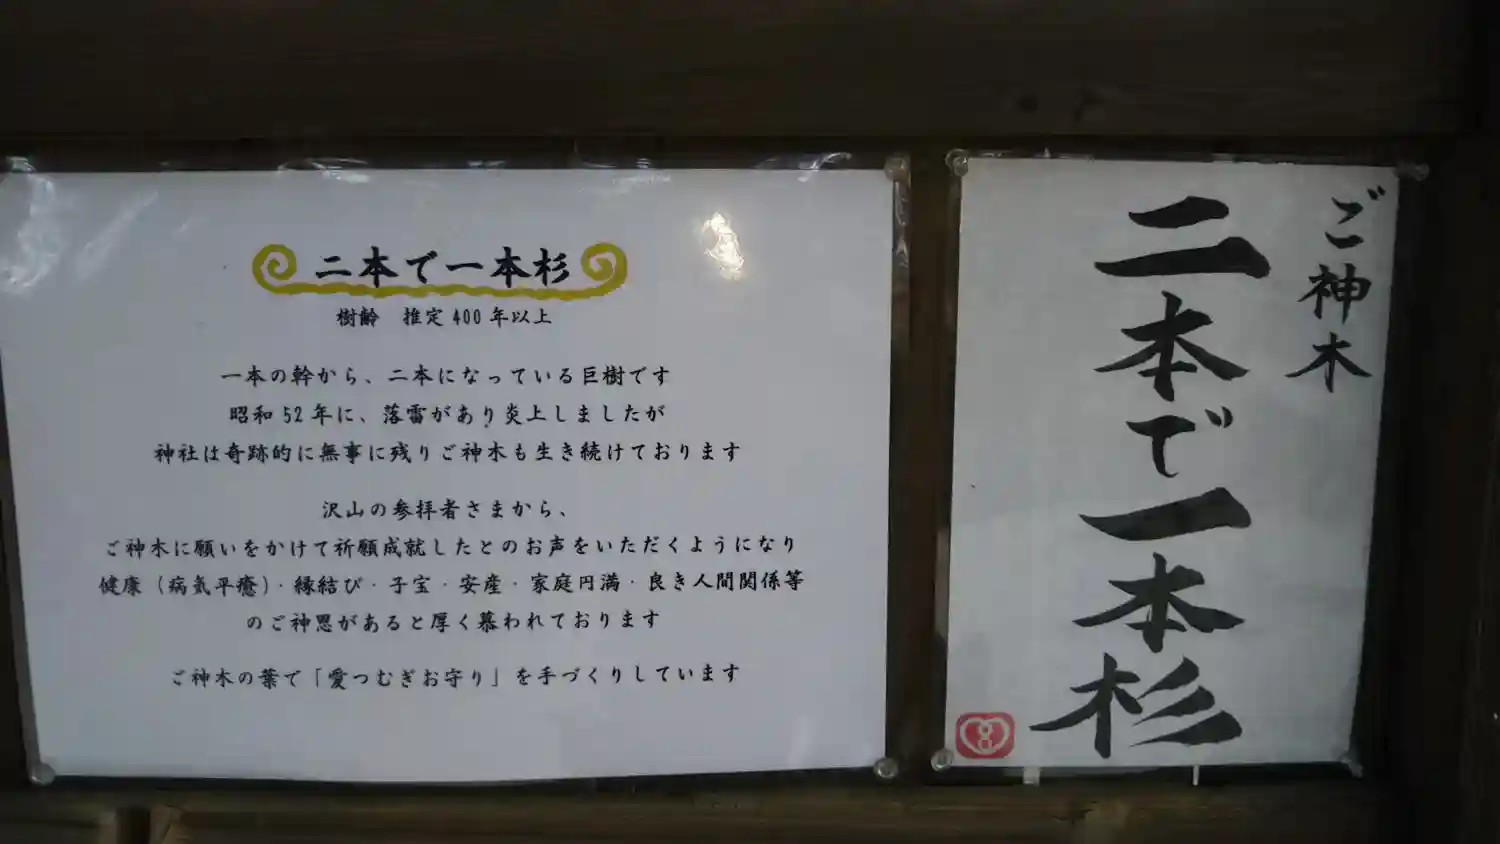 二本で一本杉
樹齢 推定400年以上
一本の幹から、二本になっている巨樹です
昭和52年に、落雷があり炎上しましたが
神社は奇跡的に無事に残りご神木も生き続けております
沢山の参拝者さまから、
ご神木に願いをかけて祈願成就したとのお声をいただくようになり
健康（病気平癒）・縁結び・子宝・安産・家庭円満・良き人間関係等
のご神恩があると厚く慕われております
ご神木の葉で「愛つむぎお守り」を手づくりしています
ご神木
二本で一本杉